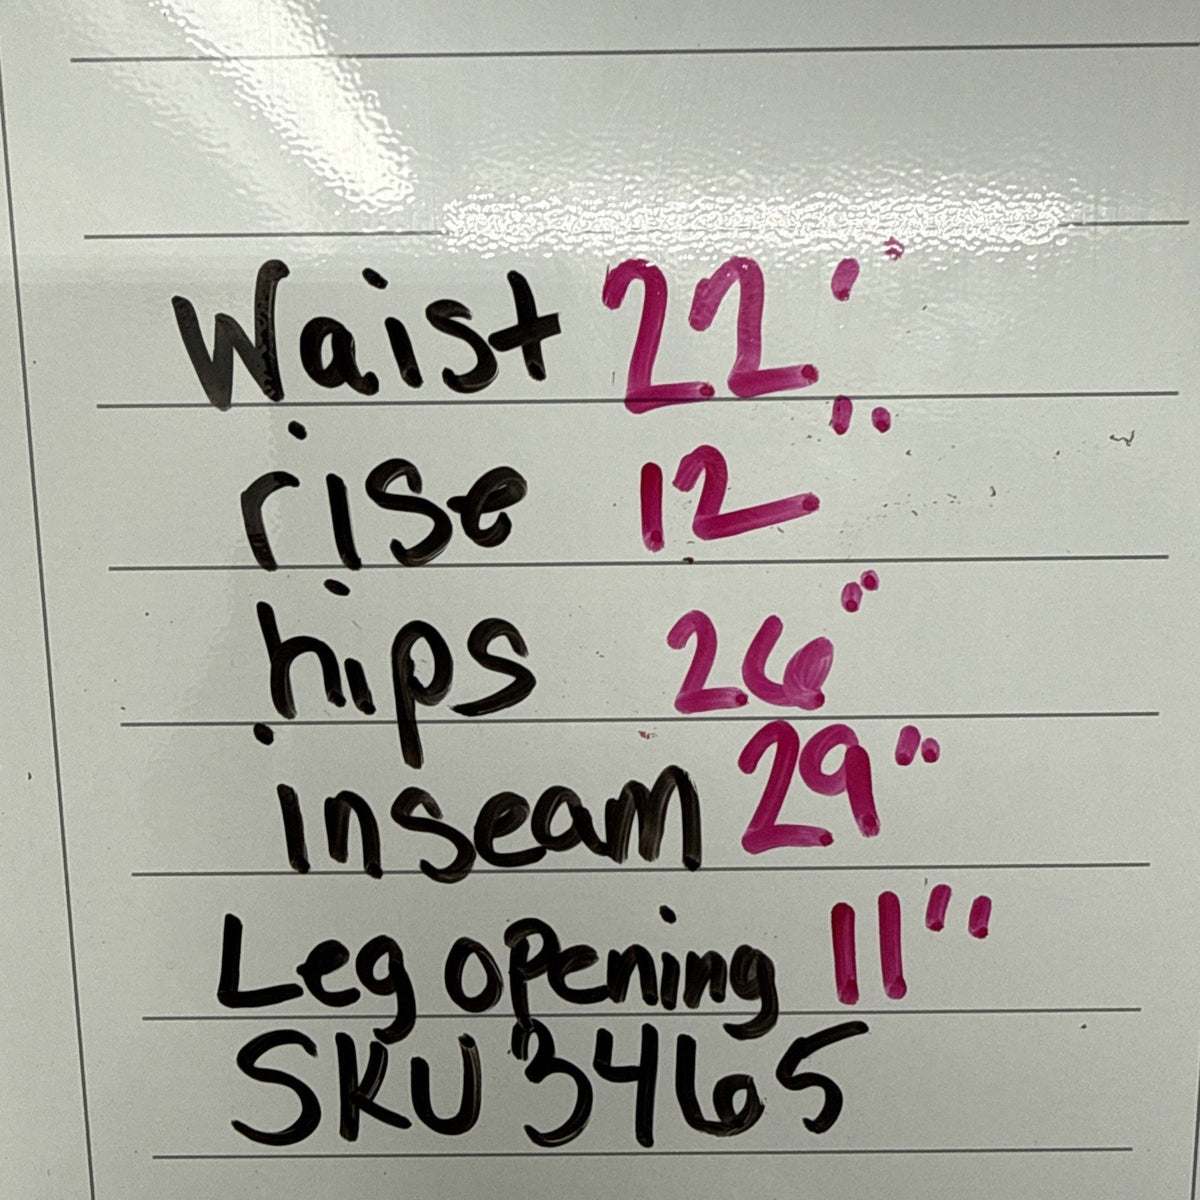 Waist 22"
rise 12"
hips 26"
inseam 29"
Leg opening 11"
SKU 3465